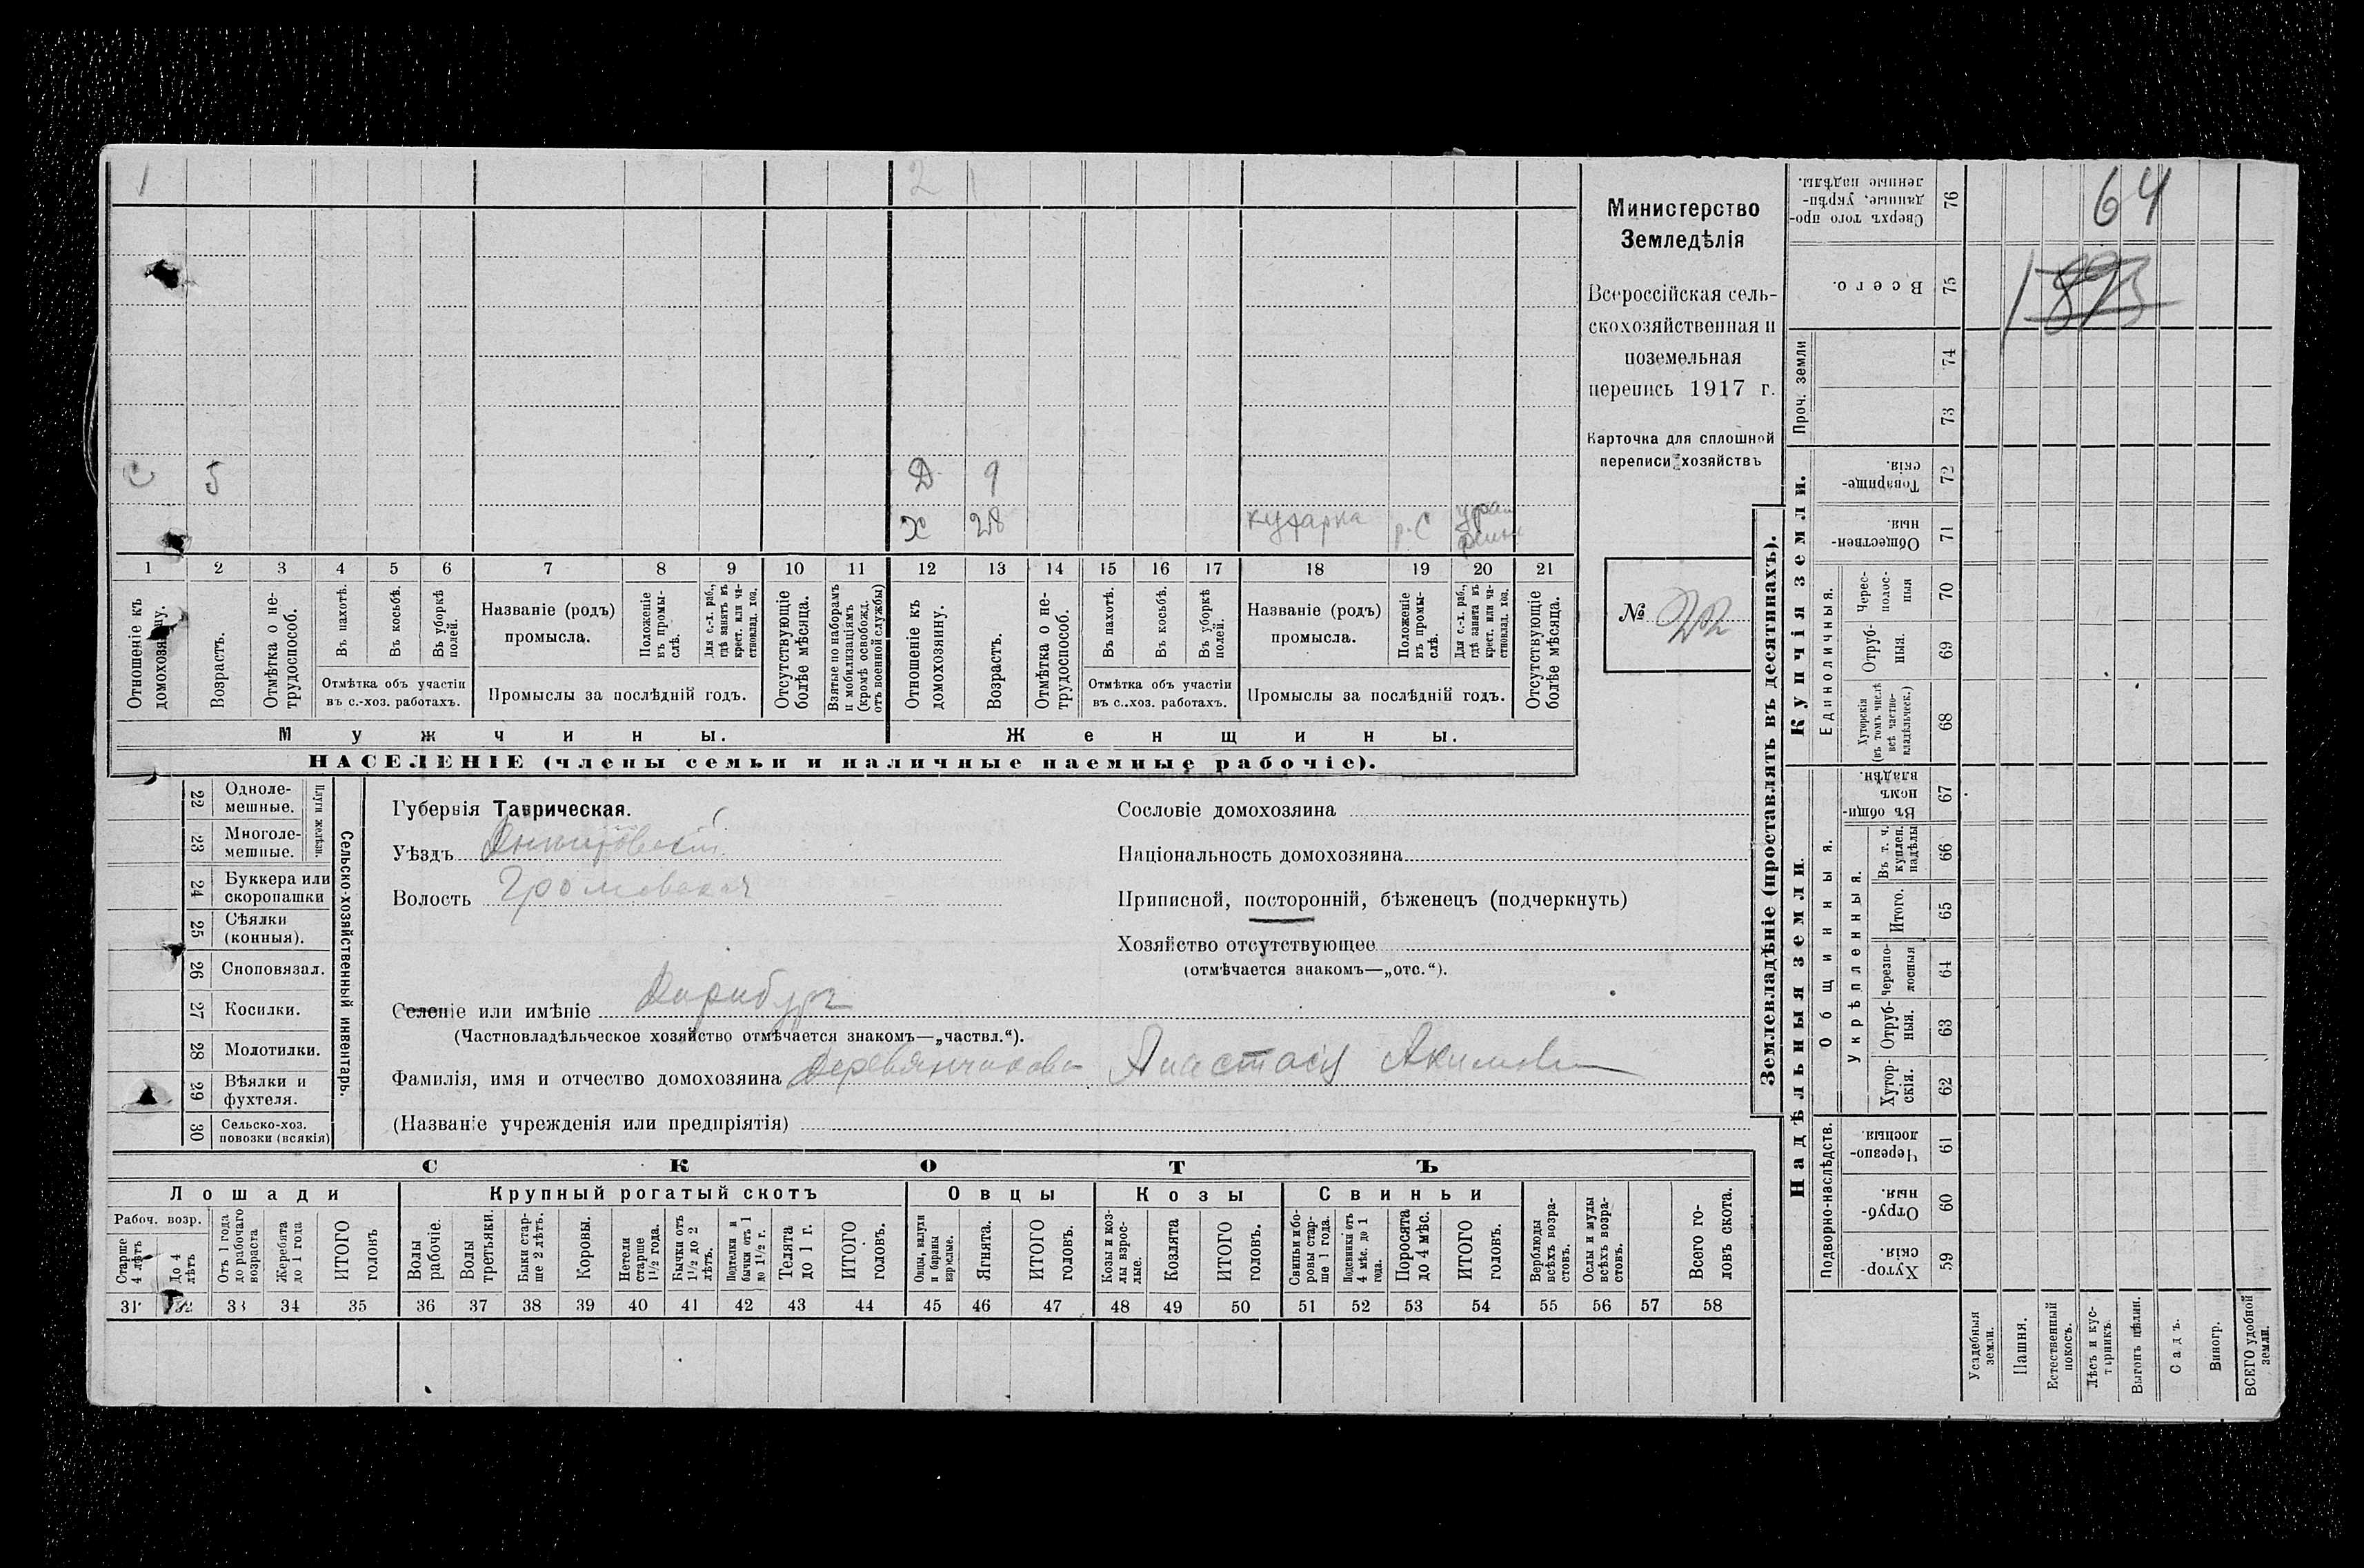 1
2
С 5
Д 9
Х 28 кухарка р.с
1 2 3 4 5 6 7 8 9 10 11 12 13 14 15 16 17 18 19 20 21
Отношеніе къ домохозяину.
Возрастъ.
Отмѣтка о нетрудоспособ.
Въ пахотѣ.
Въ косьбѣ.
Въ уборкѣ полей.
Отмѣтка объ участіи
въ с.-хоз. работахъ.
Названіе (родъ)
промысла.
Положеніе въ промыслѣ.
Для с.-х. раб., гдѣ занятъ въ крест. или частновлад. хоз.
Промыслы за послѣдній годъ.
Отсутствующіе болѣе мѣсяца.
Взятые по наборамъ и мобилизаціямъ (кромѣ освобожд. отъ военной службы)
Отношеніе къ домохозяину.
Возрастъ.
Отмѣтка о нетрудоспособ.
Въ пахотѣ.
Въ косьбѣ.
Въ уборкѣ полей.
Отмѣтка объ участіи
въ с..хоз. работахъ.
Названіе (родъ)
промысла.
Положеніе въ промыслѣ.
Для с.-х. раб., гдѣ занята въ крест. или частновлад. хоз.
Промыслы за послѣдній годъ.
Отсутствующіе болѣе мѣсяца.
Мужчины. Женщины.
НАСЕЛЕНІЕ (члены семьи и наличные наемные рабочіе).
Министерство
Земледѣлія
Всероссійская сель-
скохозяйственная и
поземельная
перепись 1917 г.
Карточка для сплошной
переписи хозяйствъ
№ 22
22 Одноле-
мешные.
23 Многоле-
мешные.
Плуги желѣзн.
24 Буккера или
скоропашки
25 Сѣялки
(конныя).
26 Сноповязал.
27 Косилки.
28 Молотилки.
29 Вѣялки и
фухтеля.
30 Сельско-хоз.
повозки (всякія)
Сельско-хозяйственный инвентарь.
Губернія Таврическая.
Уѣздъ
Волость Громовская
Селеніе или имѣніе
(Частновладѣльческое хозяйство отмѣчается знакомъ—„частвл.“).
Фамилія, имя и отчество домохозяина Анастасія Акимовн
(Названіе учрежденія или предпріятія)
Сословіе домохозяина
Національность домохозяина
Приписной, посторонній, бѣженецъ (подчеркнуть)
Хозяйство отсутствующее
(отмѣчается знакомъ—„отс.“).
СКОТЪ
Лошади Крупный рогатый скотъ Овцы Козы Свиньи
Рабоч. возр.
Старше 4 лѣтъ
До 4 лѣтъ
Отъ 1 года до рабочаго возраста
Жеребята до 1 года
ИТОГО головъ
Волы рабочіе.
Волы третьяки.
Быки старше 2 лѣтъ.
Коровы.
Нетели старше 1½ года.
Бычки отъ 1½ до 2 лѣтъ.
Подтелки и бычки отъ 1 до 1½ г.
Телята до 1 г.
ИТОГО головъ.
Овцы, валухи и бараны взрослые.
Ягнята.
ИТОГО головъ.
Козы и козлы взрослые.
Козлята
ИТОГО головъ.
Свиньи и боровы старше 1 года.
Подсвинки отъ 4 мѣс. до 1 года.
Поросята до 4 мѣс.
ИТОГО головъ.
Верблюды всѣхъ возрастовъ.
Ослы и мулы всѣхъ возрастовъ.
Всего головъ скота.
31 32 33 34 35 36 37 38 39 40 41 42 43 44 45 46 47 48 49 50 51 52 53 54 55 56 57 58
Землевладѣніе (проставлять въ десятинахъ).
Надѣльныя земли
Купчія земли.
Проч. земли
Подворно-наслѣдств.
Общинныя.
Укрѣпленныя.
Единоличныя.
Сверхъ того проданные, укрѣпленные надѣлы. 76
64
Всего. 75
74
73
Товарищескія. 72
Общественныя. 71
Чересполосныя 70
Отрубныя. 69
Хуторскія (въ томъ числѣ всѣ частновладѣльческ.) 68
Въ общинномъ владѣн. 67
Въ т. ч. куплен. надѣлы 66
Итого. 65
Черезполосныя 64
Отрубныя. 63
Хуторскія. 62
Черезполосныя. 61
Отрубныя. 60
Хуторскія. 59
Усадебныя земли.
Пашня.
Естественный покосъ.
Лѣсъ и кустарникъ.
Выгонъ цѣлин.
Садъ.
Виногр.
ВСЕГО удобной земли.